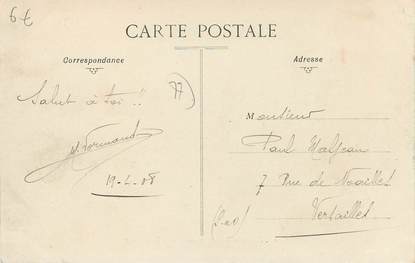 6€
CARTE POSTALE
Correspondance
Adresse
Salut à toi !!
77
Normand
19-4-08
Monsieur
Paul Maljean
7 Rue de Noailles
Versailles
(S-et-O)